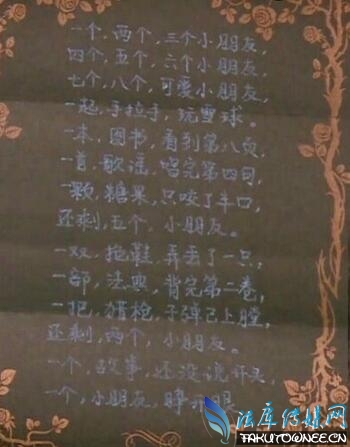 一个,两个,三个小朋友,
四个,五个,六个小朋友,
七个,八个,可爱小朋友,
一起,手拉手,玩雪球。
一本,图书,看到第八页,
一首,歌谣,唱完第四句,
一颗,糖果,只咬了半口,
还剩,五个,小朋友。
一双,拖鞋,弄丢了一只,
一部,法典,背完第二卷,
一把,猎枪,子弹已上膛,
还剩,两个,小朋友。
一个,故事,还没说开头,
一个,小朋友,睁开眼
法库传媒网
TAKUTOWNEE.CN